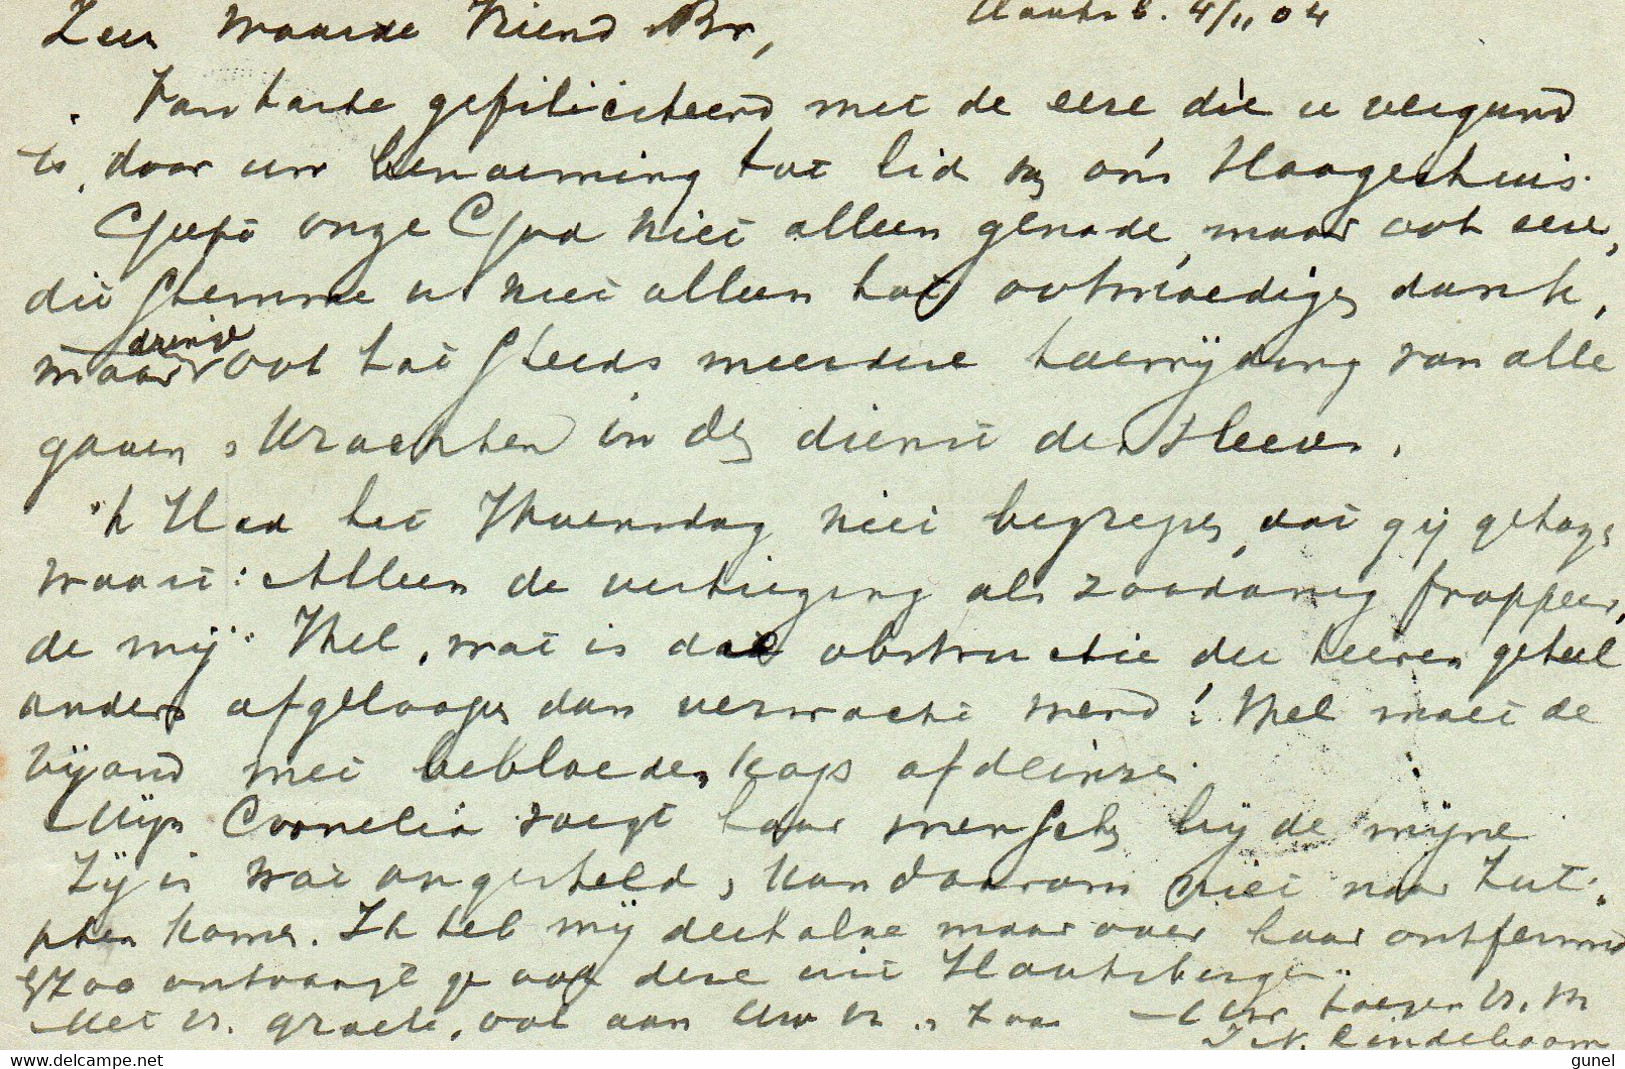 Zeer Waarde Vriend & Br, Hantsb. 4/11 04
Van harte gefiliciteerd met de eere die u vergund
is, door uw benoeming tot lid v. ons Hoogerhuis.
Geeft onze God niet alleen genade, maar ook eere,
die stemme u niet alleen tot ootmoedigen dank,
maar dringe ook tot steeds meerdere toewijding van alle
gaven & krachten in den dienst des Heeren.
'k Had het Woensdag niet begrepen, dat gij getogen
waart: Alleen de vertieging als zoodanig frappeer,
de mij. Wel, wat is die obstructie der heeren geheel
anders afgeloopen dan verwacht werd! Wel moet de
vijand met bebloeden kop afdeinzen.
Mijn Cornelia voegt haar wensch bij de mijne
Zij is wat ongesteld, kan daarom niet naar Zut-
phen komen. Ik heb mij deshalve maar over haar ontfermd
& zoo ontvangt ge ook deze uit
Met br. groete, ook aan Uw Zoon Uw toegen. Br. &
J. N. Lindeboom
www.delcampe.net
gunel